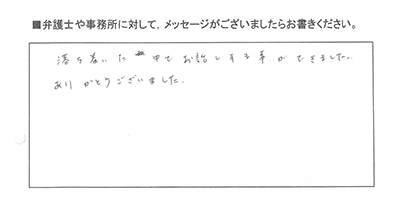 ■弁護士や事務所に対して，メッセージがございましたらお書きください。
落ち着いた 中でお話しする事ができました。
ありがとうございました。